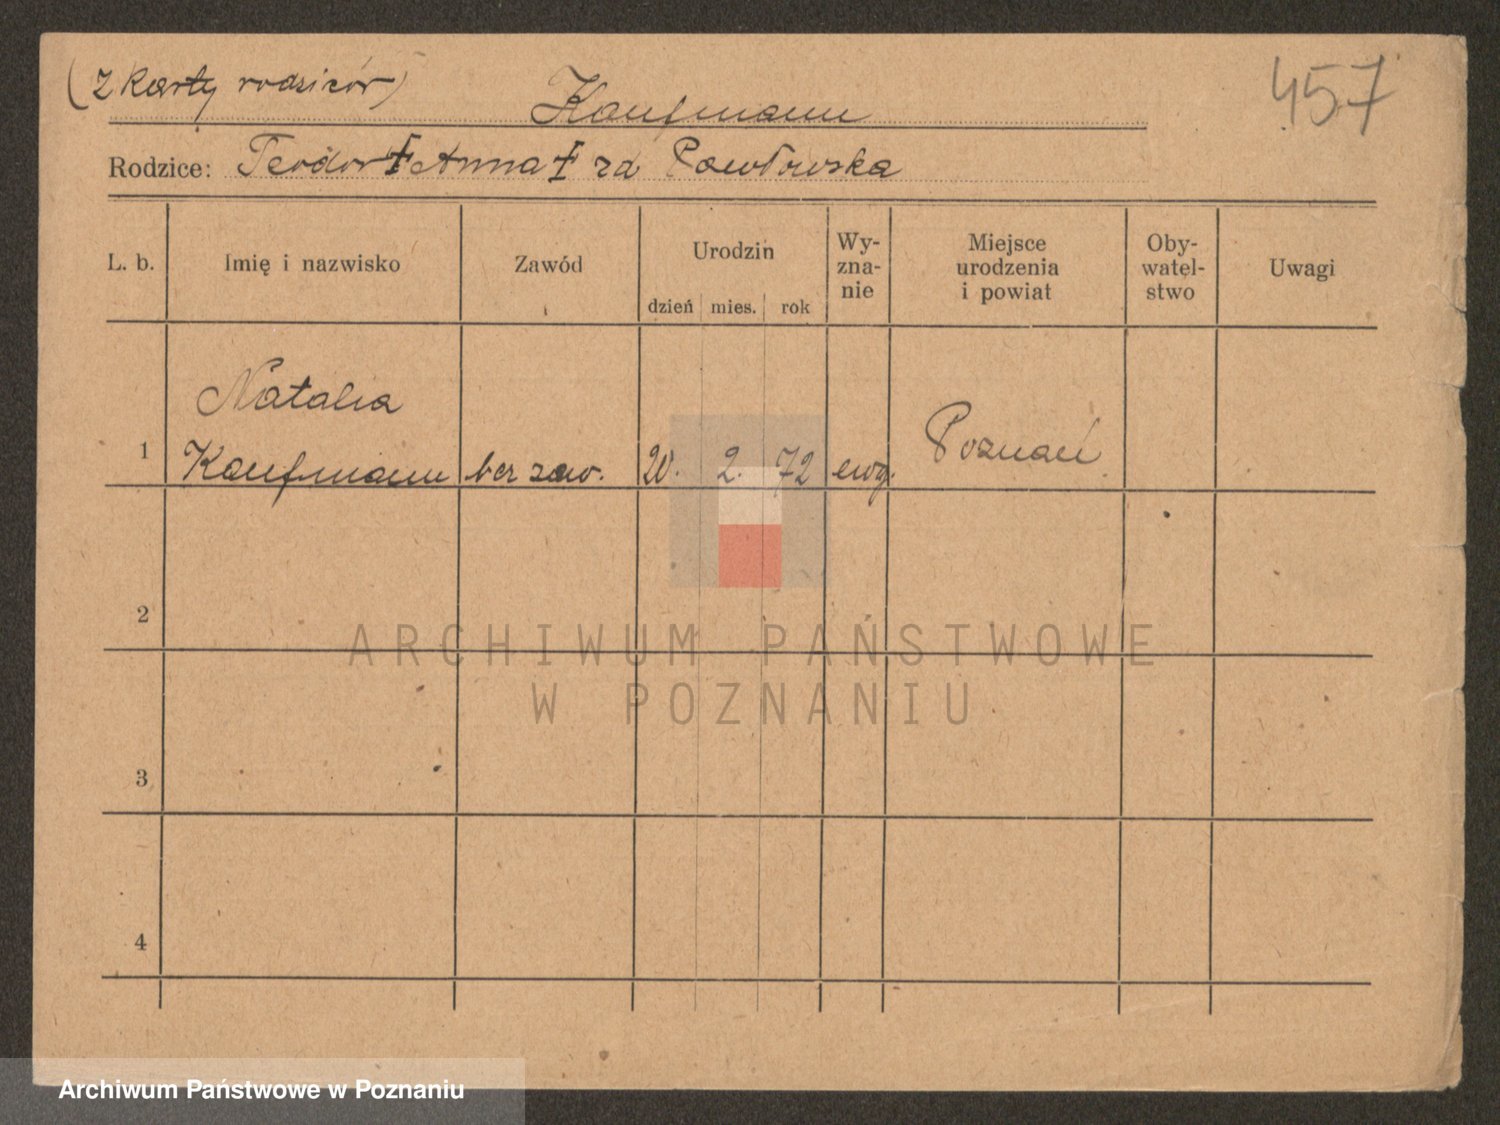 (z karty rodziców)
Kaufmann
457
Rodzice: Teodor † Anna † zd Pawłowska
L. b. Imię i nazwisko Zawód Urodzin dzień mies. rok Wy-zna-nie Miejsce urodzenia i powiat Oby-watel-stwo Uwagi
Natalia
1 Kaufmann bez zaw. 20. 2. 72 ewg. Poznań
2
ARCHIWUM PAŃSTWOWE
W POZNANIU
3
4
Archiwum Państwowe w Poznaniu